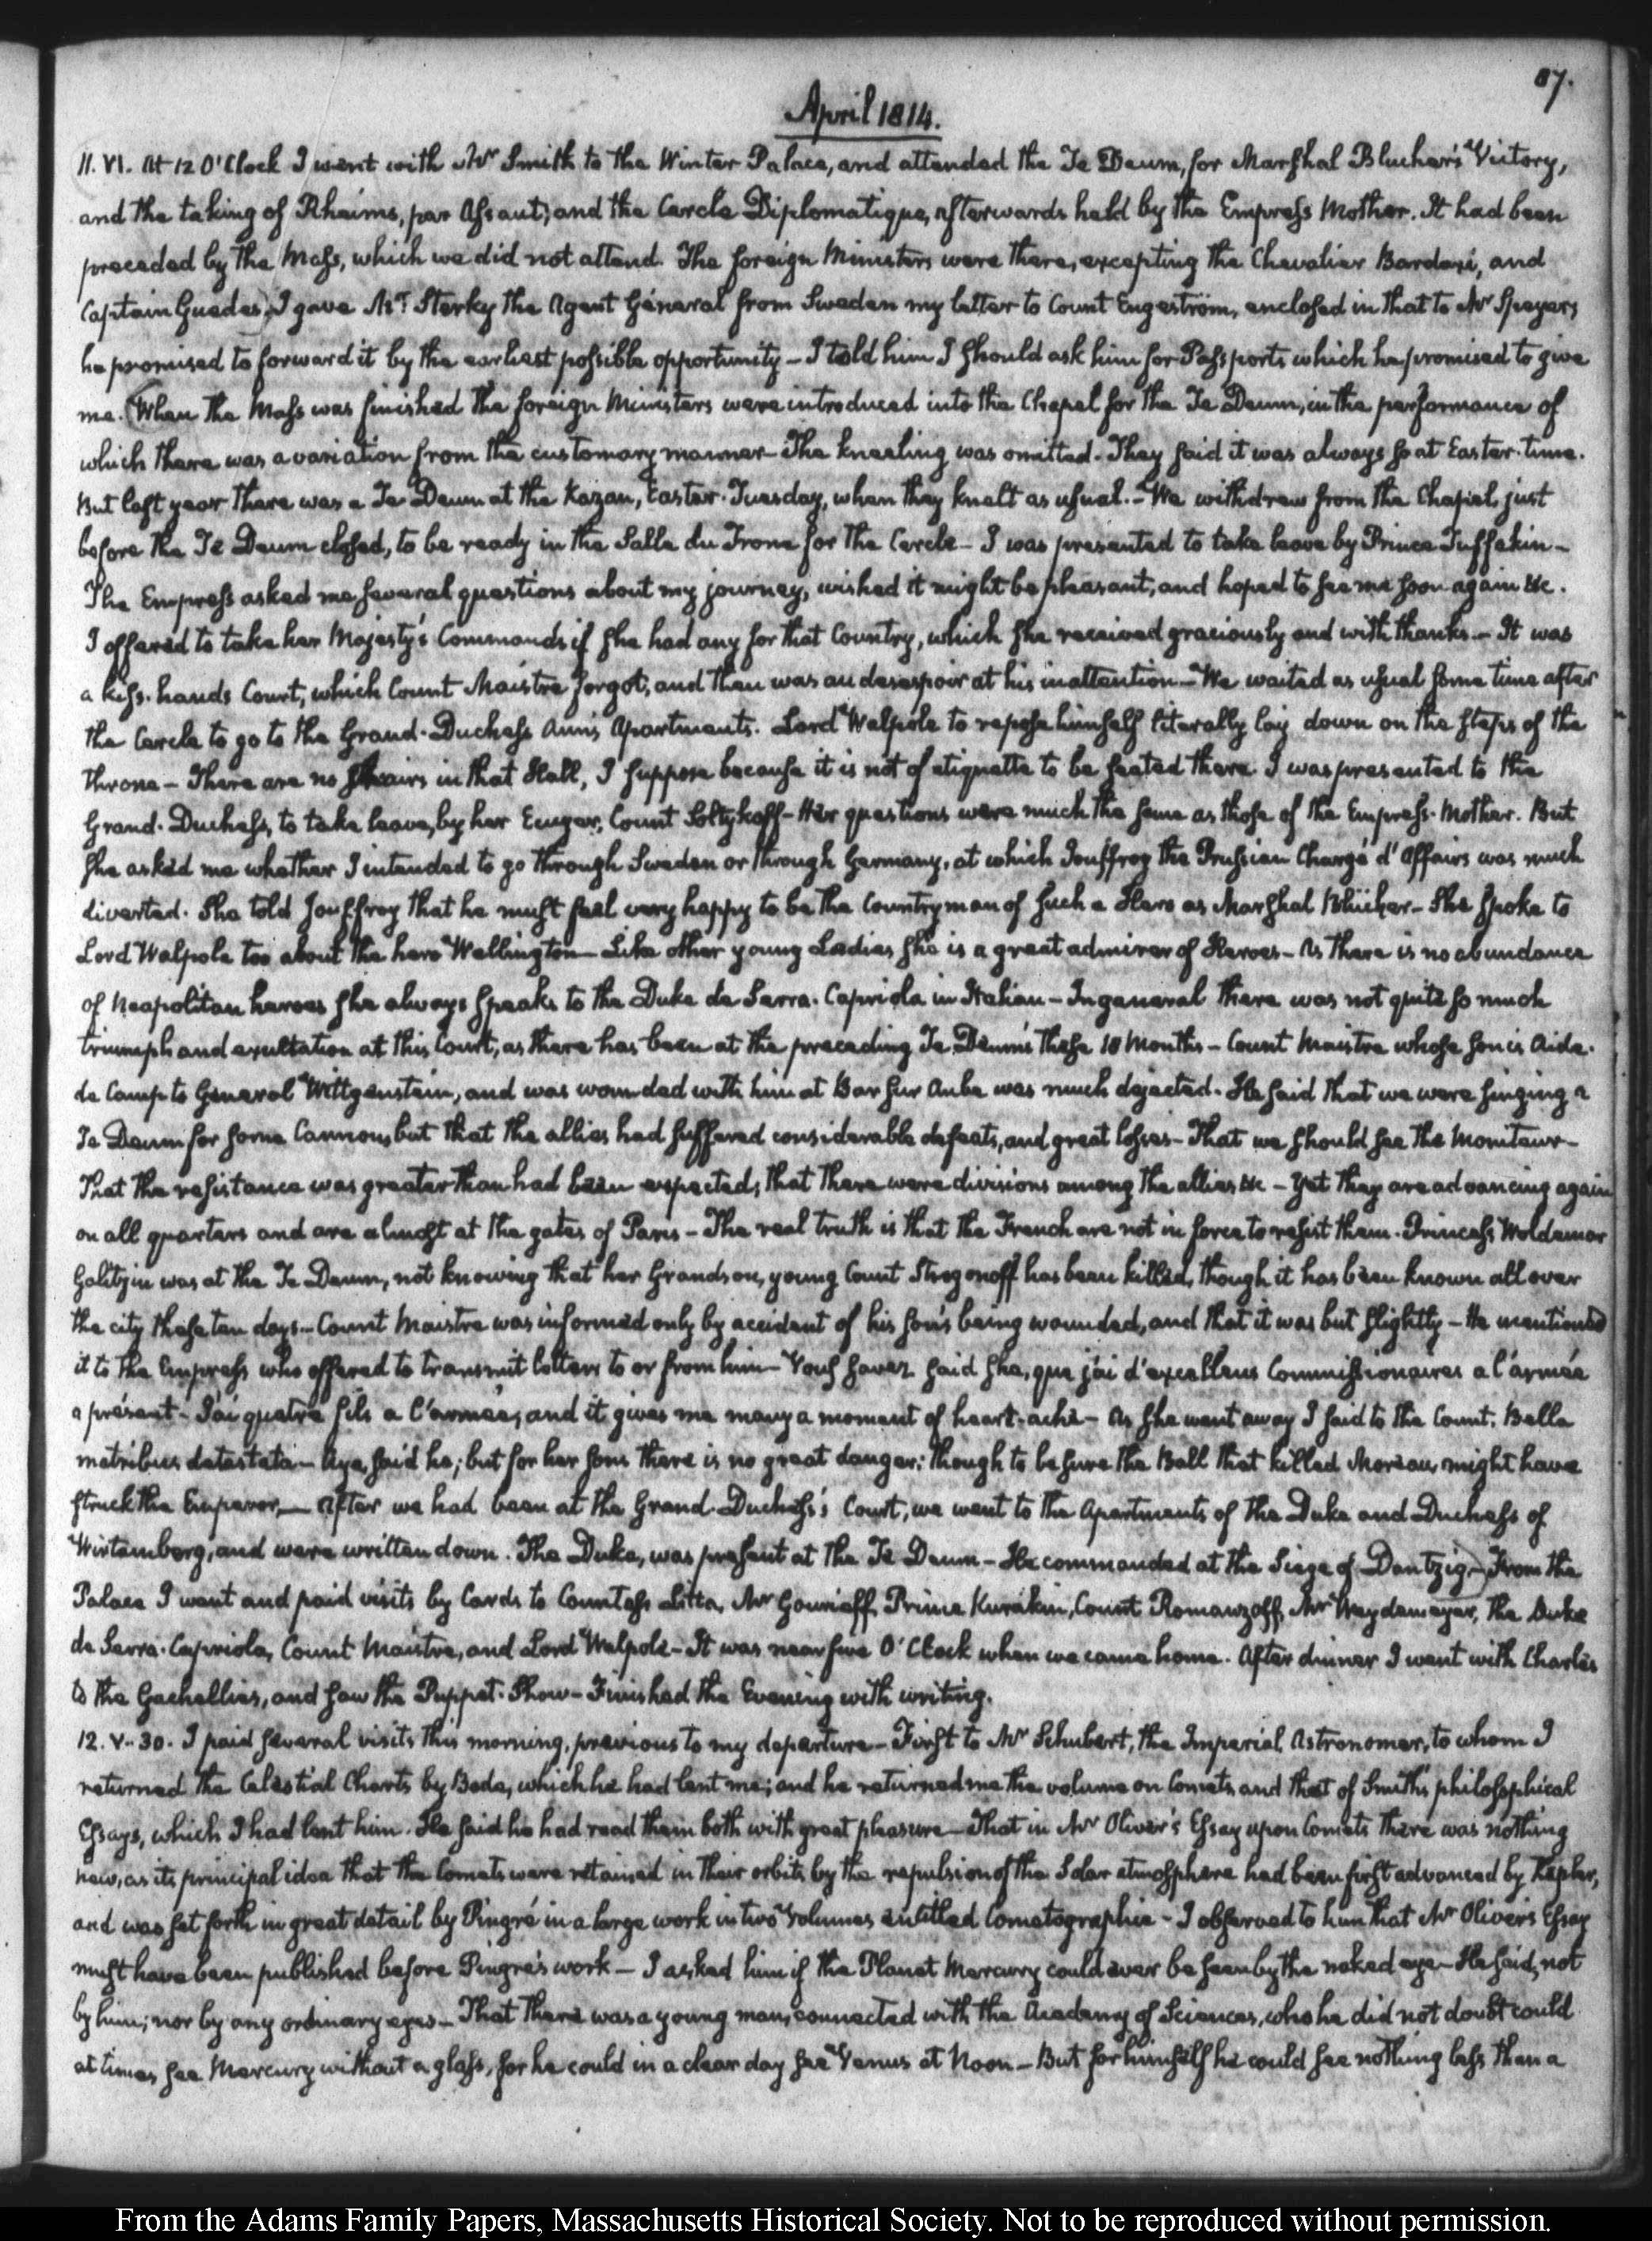 87.
April 1814.
11. VI. At 12 O'Clock I went with Mr Smith to the Winter Palace, and attended the Te Deum, for Marshal Blucher's Victory,
and the taking of Rheims, par Assaut; and the Cercle Diplomatique, afterwards held by the Empress Mother. It had been
preceded by the Mass, which we did not attend. The foreign Ministers were there, excepting the Chevalier Bardaxi, and
Captain Guedes. I gave Mr Sterky the Agent General from Sweden my letter to Count Engeström, enclosed in that to Mr Speyer;
he promised to forward it by the earliest possible opportunity - I told him I should ask him for Passports which he promised to give
me. (When the Mass was finished the foreign Ministers were introduced into the Chapel for the Te Deum, in the performance of
which there was a variation from the customary manner - The kneeling was omitted. They said it was always so at Easter-time.
But last year there was a Te Deum at the Kazan, Easter-Tuesday, when they knelt as usual. - We withdrew from the Chapel, just
before the Te Deum closed, to be ready in the Salle du Trone for the Cercle - I was presented to take leave by Prince Tuffekin -
The Empress asked me several questions about my journey, wished it might be pleasant, and hoped to see me soon again &c.
I offered to take her Majesty's Commands if she had any for that Country, which she received graciously and with thanks. - It was
a kiss-hands Court, which Count Maistre forgot; and then was au desespoir at his inattention - We waited as usual some time after
the Cercle to go to the Grand-Duchess Ann's Apartments. Lord Walpole to repose himself literally lay down on the steps of the
throne - There are no chairs in that Hall, I suppose because it is not of etiquette to be seated there. I was presented to the
Grand-Duchess, to take leave, by her Ecuyer, Count Soltykoff - Her questions were much the same as those of the Empress-Mother. But
she asked me whether I intended to go through Sweden or through Germany, at which Jouffroy the Prussian Chargé d'Affairs was much
diverted. She told Jouffroy that he must feel very happy to be the Countryman of such a Hero as Marshal Blücher - She spoke to
Lord Walpole too about the hero Wellington - Like other young Ladies she is a great admirer of Heroes - As there is no abundance
of Neapolitan heroes she always speaks to the Duke de Serra-Capriola in Italian - In general there was not quite so much
triumph and exultation at this Court, as there has been at the preceding Te Deum's these 18 Months - Count Maistre whose son is Aide-
de Camp to General Wittgenstein, and was wounded with him at Bar sur Aube was much dejected. He said that we were singing a
Te Deum for some Cannon, but that the allies had suffered considerable defeats, and great losses - That we should see the Moniteur -
That the resistance was greater than had been expected, that there were divisions among the allies &c - Yet they are advancing again
on all quarters and are almost at the gates of Paris - The real truth is that the French are not in force to resist them. Princess Woldemar
Galitzin was at the Te Deum, not knowing that her Grandson, young Count Strogonoff has been killed, though it has been known all over
the city these ten days. - Count Maistre was informed only by accident of his son's being wounded, and that it was but slightly - He mentioned
it to the Empress who offered to transmit letters to or from him - Vous savez said she, que j'ai d'excellens Commissionaires a l'armée
a présent - J'ai quatre fils a l'armée; and it gives me many a moment of heart-ache - As she went away I said to the Count. Bella
matribus detestata - Aye, said he; but for her sons there is no great danger: though to be sure the Ball that killed Moreau, might have
struck the Emperor. - After we had been at the Grand-Duchess's Court, we went to the Apartments of the Duke and Duchess of
Wirtemberg, and were written down. The Duke, was present at the Te Deum - He commanded at the Siege of Dantzig -) From the
Palace I went and paid visits by Cards to Countess Litta, Mr Gourieff, Prince Kurakin, Count Romanzoff, Mr Weydemeyer, the Duke
de Serra-Capriola, Count Maistre, and Lord Walpole - It was near five O'Clock when we came home. After dinner I went with Charles
to the Gachellies, and saw the Puppet-Show - Finished the Evening with writing.
12. V-30. I paid several visits this morning, previous to my departure - First to Mr Schubert, the Imperial Astronomer, to whom I
returned the Celestial Charts by Bode, which he had lent me; and he returned me the volume on Comets, and that of Smith's philosophical
Essays, which I had lent him. He said he had read them both with great pleasure - That in Mr Oliver's Essay upon Comets there was nothing
new, as its principal idea that the Comets were retained in their orbits by the repulsion of the Solar atmosphere had been first advanced by Kepler,
and was set forth in great detail by Pingré in a large work in two Volumes entitled Cometographie - I observed to him that Mr Oliver's Essay
must have been published before Pingré's work - I asked him if the Planet Mercury could ever be seen by the naked eye - He said, not
by him; nor by any ordinary eyes - That there was a young man, connected with the Academy of Sciences, who he did not doubt could
at times see Mercury without a glass, for he could in a clear day see Venus at Noon - But for himself he could see nothing less than a
From the Adams Family Papers, Massachusetts Historical Society. Not to be reproduced without permission.